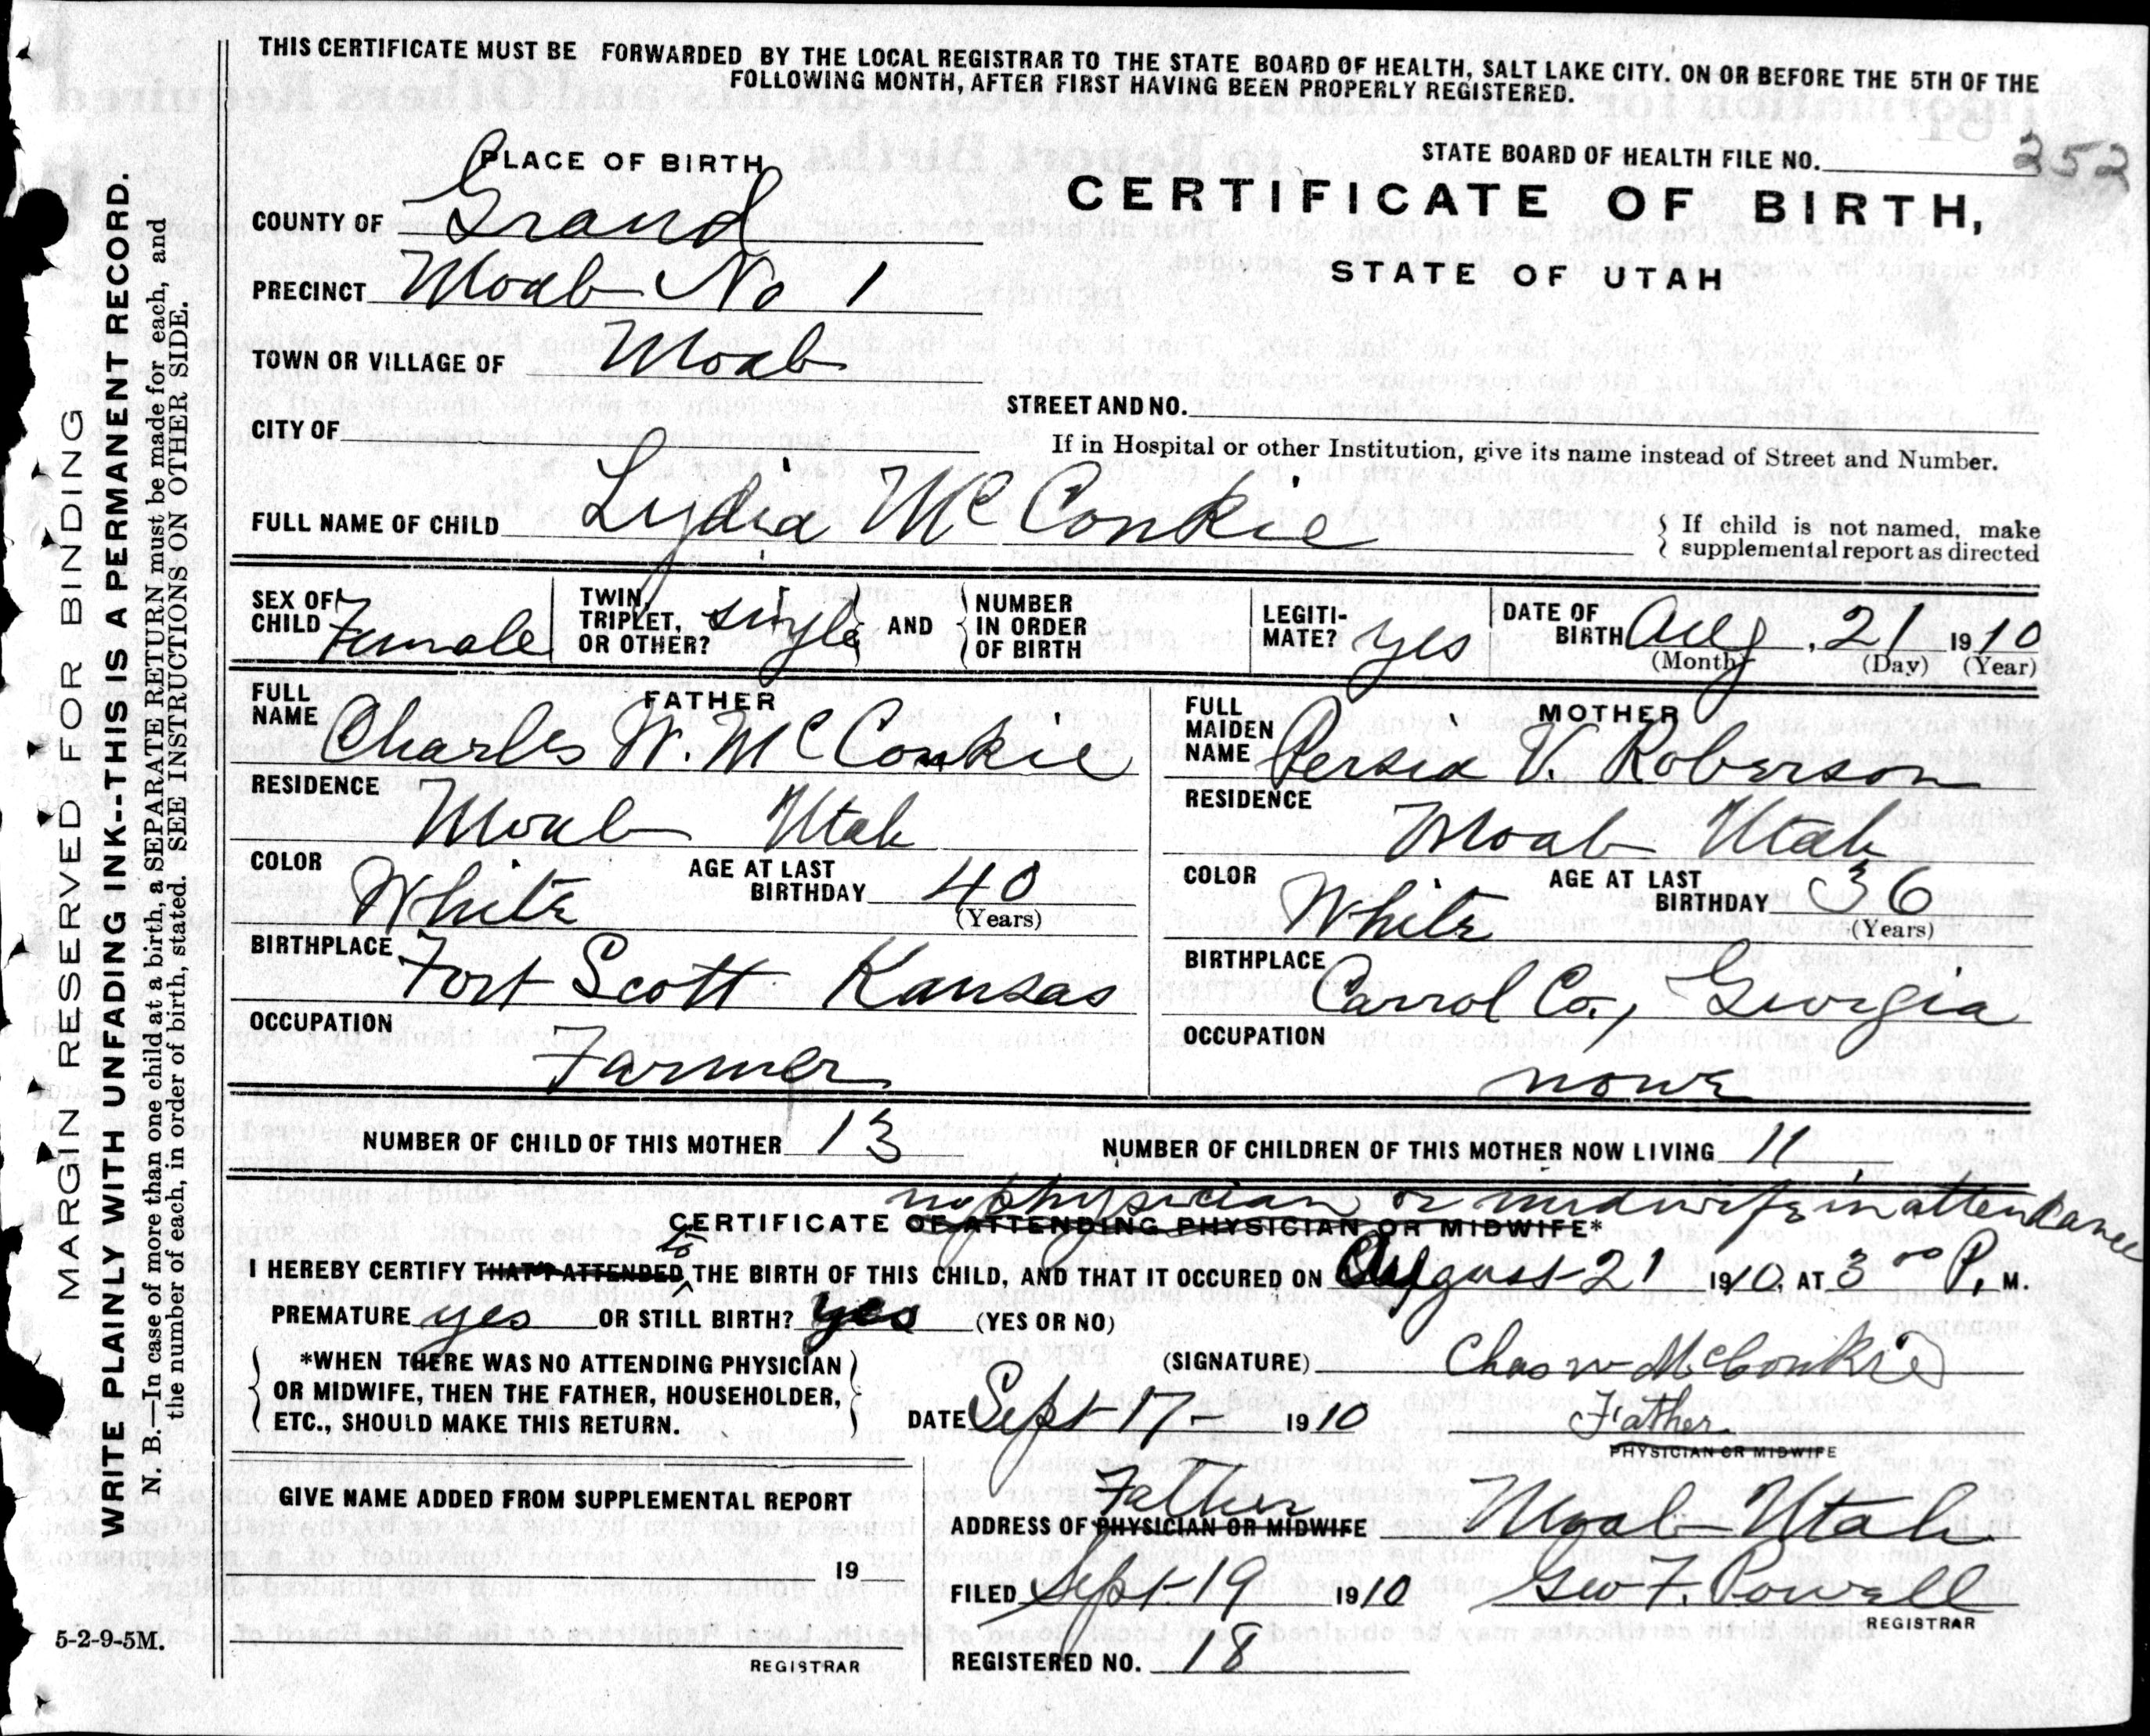 THIS CERTIFICATE MUST BE FORWARDED BY THE LOCAL REGISTRAR TO THE STATE BOARD OF HEALTH, SALT LAKE CITY. ON OR BEFORE THE 5TH OF THE
FOLLOWING MONTH, AFTER FIRST HAVING BEEN PROPERLY REGISTERED.
MARGIN RESERVED FOR BINDING
WRITE PLAINLY WITH UNFADING INK--THIS IS A PERMANENT RECORD.
N. B.—In case of more than one child at a birth, a SEPARATE RETURN must be made for each, and
the number of each, in order of birth, stated. SEE INSTRUCTIONS ON OTHER SIDE.
STATE BOARD OF HEALTH FILE NO. 252
PLACE OF BIRTH
CERTIFICATE OF BIRTH,
STATE OF UTAH
COUNTY OF Grand
PRECINCT Moab No 1
TOWN OR VILLAGE OF Moab
STREET AND NO.
CITY OF
If in Hospital or other Institution, give its name instead of Street and Number.
FULL NAME OF CHILD Lydia McConkie
If child is not named, make
supplemental report as directed
SEX OF CHILD Female
TWIN, TRIPLET, OR OTHER? single
AND
NUMBER IN ORDER OF BIRTH
LEGITIMATE? yes
DATE OF BIRTH Aug. 21 1910
(Month) (Day) (Year)
FATHER
FULL NAME Charles W. McConkie
RESIDENCE
Moab Utah
COLOR White
AGE AT LAST BIRTHDAY 40
(Years)
BIRTHPLACE Fort Scott Kansas
OCCUPATION
Farmer
MOTHER
FULL MAIDEN NAME Persia V. Roberson
RESIDENCE
Moab Utah
COLOR White
AGE AT LAST BIRTHDAY 36
(Years)
BIRTHPLACE
Carrol Co., Georgia
OCCUPATION
none
NUMBER OF CHILD OF THIS MOTHER 13
NUMBER OF CHILDREN OF THIS MOTHER NOW LIVING 11
no physician or midwife in attendance
CERTIFICATE OF ATTENDING PHYSICIAN OR MIDWIFE*
to
I HEREBY CERTIFY THAT I ATTENDED THE BIRTH OF THIS CHILD, AND THAT IT OCCURED ON August 21 1910, AT 3 00 P. M.
PREMATURE yes OR STILL BIRTH? yes (YES OR NO)
*WHEN THERE WAS NO ATTENDING PHYSICIAN
OR MIDWIFE, THEN THE FATHER, HOUSEHOLDER,
ETC., SHOULD MAKE THIS RETURN.
(SIGNATURE) Chas W McConkie
DATE Sept 17- 1910
Father
PHYSICIAN OR MIDWIFE
GIVE NAME ADDED FROM SUPPLEMENTAL REPORT
19
REGISTRAR
Father
ADDRESS OF PHYSICIAN OR MIDWIFE Moab Utah
FILED Sept 19 1910 Geo F. Powell
REGISTRAR
REGISTERED NO. 18
5-2-9-5M.